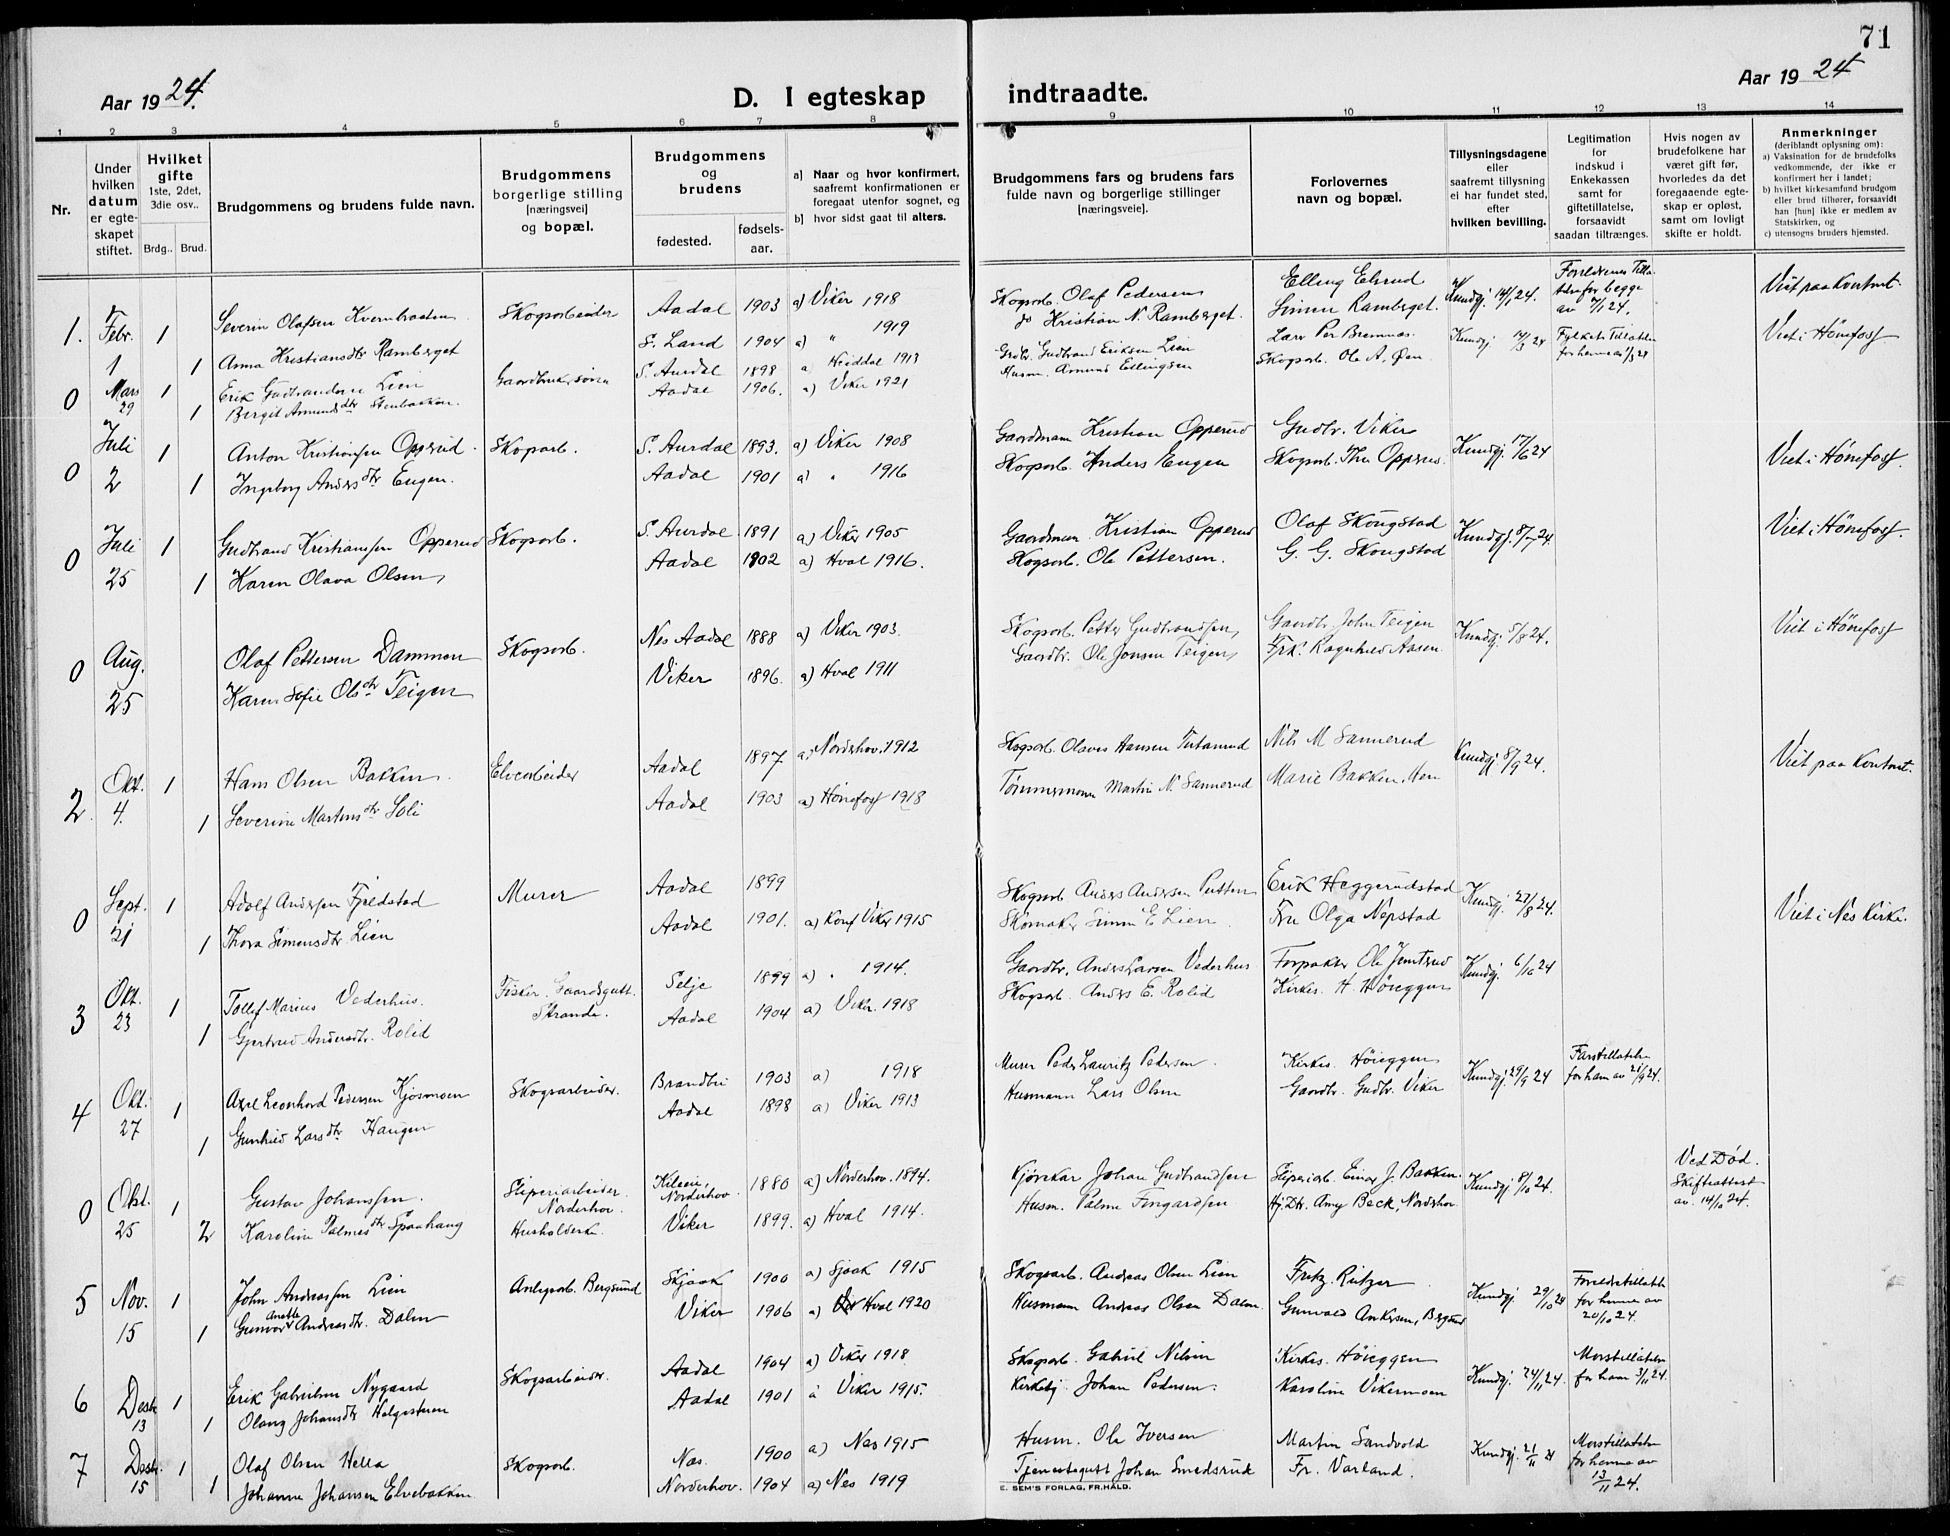 71
Aar 1924.
D. I egteskap
indtraadte.
Aar 1924
1 2 3 4 5 6 7 8 9 10 11 12 13 14
Nr.
Under
hvilken
datum
er egte-
skapet
stiftet.
Hvilket
gifte
1ste, 2det,
3die osv..
Brdg.. Brud.
Brudgommens og brudens fulde navn.
Brudgommens
borgerlige stilling
[næringsvei]
og bopæl.
Brudgommens
og
brudens
fødested.
fødsels-
aar.
a) Naar og hvor konfirmert,
saafremt konfirmationen er
foregaat utenfor sognet, og
b) hvor sidst gaat til alters.
Brudgommens fars og brudens fars
fulde navn og borgerlige stillinger
[næringsveie].
Forlovernes
navn og bopæl.
Tillysningsdagene
eller
saafremt tillysning
ei har fundet sted,
efter
hvilken bevilling.
Legitimation
for
indskud i
Enkekassen
samt for
giftetillatelse,
forsaavidt
saadan tiltrænges.
Hvis nogen av
brudefolkene har
været gift før,
hvorledes da det
foregaaende egte-
skap er opløst,
samt om lovligt
skifte er holdt.
Anmerkninger
(deriblandt oplysning om):
a) Vaksination for de brudefolks
vedkommende, der ikke er
konfirmert her i landet;
b) hvilket kirkesamfund brudgom
eller brud tilhører, forsaavidt
han [hun] ikke er medlem av
Statskirken, og
c) utensogns bruders hjemsted.
1. Febr. 1 Severin Olafsen Kvernbraaten Skogsarbeider Aadal 1903 a) Viker 1918 Skogsarb. Olaf Pedersen Elling Elsrud Kundgj. 14/1 24. Foreldrenes Tilla- Viet paa Kontoret.
1 1 Anna Kristiansdtr Ramberget S. Land 1904 a) " 1919 do Kristian N. Ramberget. Simen Ramberget. telse for begge
av 7/1 24.
0 Mars 1 Erik Gudbrandsen Lien Gaardbrukersønn S. Aurdal 1898 a) Heiddal 1913 Grdbr. Gudbrand Eriksen Lien Lars Per Bremnes Kundgj. 14/3 24 Fylkets Tillatelse Viet i Hønefoss
29 1 Bergit Amundsdtr Stenbakken. Aadal 1906. a) Viker 1921 Husm. Amund Ellingsen Skogsarb. Ole A. Øen for henne
0 Juli 1 Anton Kristiansen Opperud. Skogsarb. S. Aurdal 1893. a) Viker 1908 Gaardmann Kristian Opperud Gudbr. Viker Kundgj. 17/6 24 Viet i Hønefoss.
2 1 Ingeborg Andersdtr Eugen. Aadal 1901 a) " 1916 Skogsarb. Anders Eugen Skogsarb. Thv Opperud.
0 Juli 1 Gudbrand Kristiansen Opperud Skogsarb. S. Aurdal 1891 a) Viker 1905 Gaardmann Kristian Opperud Olaf Skougstad Kundgj. 8/7 24. Viet i Hønefoss.
25 1 Karen Olava Olsen Aadal 1902 a) Hval 1916. Skogsarb. Ole Pettersen. G. G. Skougstad
0 Aug. Olaf Pettersen Dammen Skogsarb. Nes Aadal 1888 a) Viker 1903. Skogsarb. Petter Gudbrandsen Gaardbr. John Teigen Kundgj. 5/8 24. Viet i Hønefoss
25 Karen Sofie Olsdtr Teigen Viker 1896. a) Hval 1911 Gaardbr. Ole Jonsen Teigen Frk. Ragnhild Aasen.
2. Okt. 1 Hans Olsen Bakken. Elvearbeider Aadal 1897 a) Norderhov. 1912 Skogsarb. Olaves Hansen Nils M Sannerud Kundgj. 8/9 24. Viet paa Kontoret.
4. 1 Severine Martinsdtr Soli Aadal 1903 a) Hönefoss 1918 Tømmermann Martin N. Sannerud Marie Bakken, Hen
0 Sept. 1 Adolf Andersen Fjeldstad Murer Aadal 1899 Skogsarb Anders Andersen Putten Erik Heggerudstad Kundgj. 27/8 24. Viet i Nes Kirke.
21 1 Thora Simensdtr Lien Aadal 1901. a) Konf Viker 1915 Skomaker Simen E. Lien. Fru Olga Nepstad
3 Okt. 1 Tollef Marius Vederhus. Fisker. Gaardsgutt. Selje 1899 a) " 1914. Gaardbr. Anders Larsen Vederhus Forpakter Ole Jemtrud Kundgj. 6/10 24
23 1 Gjertrud Andersdtr. Rolid Stranda. Aadal 1904 a) Viker. 1918 Skogsarb. Anders E. Rolid Kirkes. H. Höieggen
4 Okt. 1 Axel Leonhard Pedersen Kjösmoen Skogsarbeider. Brandbu 1903 a) 1918 Murer Peder Lauritz Pedersen. Kirkes. Höieggen Kundgj. 29/9 24 Farstillatelse
27 1 Gunhild Larsdtr Haugen Aadal 1898 a) Viker 1913 Husmann Lars Olsen Gaardbr. Gudbr. Viker for ham av 21/9 24.
0 Okt. 1 Gustav Johanssen. Sliperiarbeider. Norderhov. 1880 a) Norderhov. 1894. Kjörekar Johan Gudbrandsen Sliperiarb. Einar J. Bakken. Kundgj. 8/10 24. Ved Död.
25 2 Karoline Palmesdtr Spaahaug Norderhov. Husholderske. Viker 1899. a) Hval 1914. Husm. Palme Fingardsen Hj.Dtr. Amy Beck, Norderhov. Skifteattest
av. 14/10 24.
5 Nov. 1 John Andreassen Lien Anlegsarb. Bergsund Skjaak 1900 a) Sjaak 1915 Skogsarb. Andreas Olsen Lien Fritz Ritzer Kundgj. 29/10 24 Foreldretillatelse
15 1 Gunvor Anette Andreasdtr. Dalen Viker 1906 a) Hval 1920 Husmann Andreas Olsen Dalen Gunvald Ankersen, Bergsund for henne av
20/10 24.
6 Desbr. 1 Erik Gabrielsen Nygaard Skogsarbeider. Aadal 1904 a) Viker 1918 Skogsarb. Gabriel Nilsen Kirkes. Höieggen Kundgj. 24/11 24. Morstillatelse
13 1 Olaug Johansdtr Helgesteren Aadal 1901 a Viker 1915. Kirketj. Johan Pedersen. Karoline Vikermoen for ham 3/11 24.
7 Desbr. 1 Olaf Olsen Hella Skogsarb. Nes. 1900 a) Nes 1915 Husm. Ole Iversen Martin Sandvold Kundgj. 21/11 24 Morstillatelse
15 1 Johanne Johansen Elvebakken Norderhov. 1904 a) Nes 1919 Tjenestegutt Johan Smedsrud Fr. Varland. for henne av
13/11 24.
E. SEM'S FORLAG, FR.HALD.